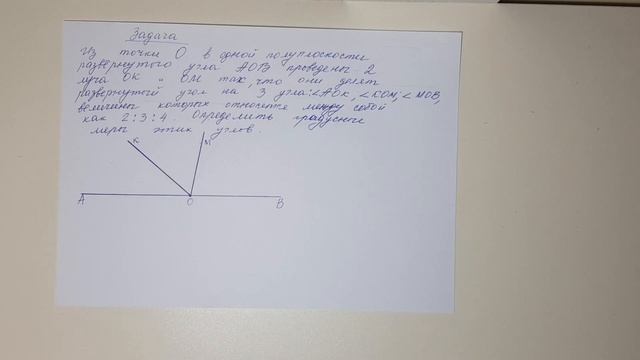 Задача
Из точки О в одной полуплоскости
развернутого угла АОВ проведены 2
луча ОК и ОМ так, что они делят
развернутый угол на 3 угла: ∠АОК, ∠КОМ, ∠МОВ,
величины которых относятся между собой
как 2:3:4. Определить градусные
меры этих углов.
К М
А О В